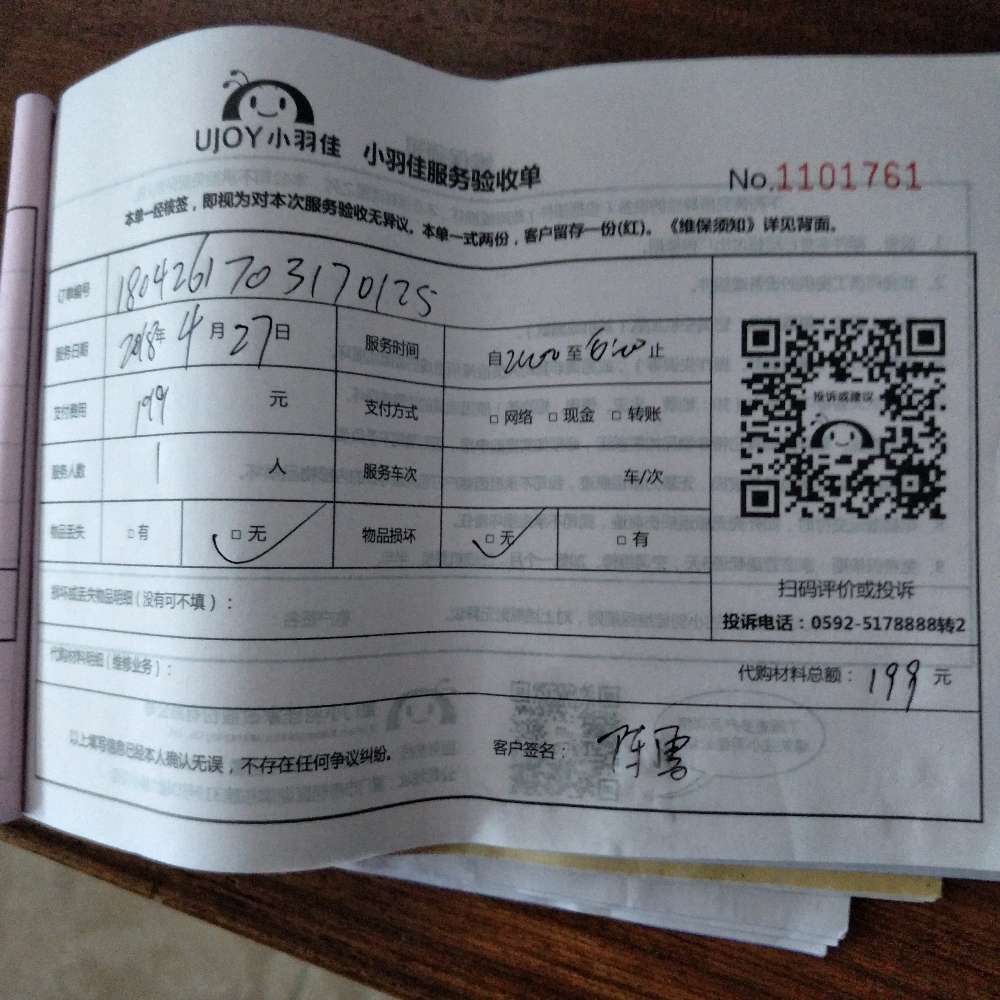 UJOY小羽佳 小羽佳服务验收单
No.1101761
本单一经核签，即视为对本次服务验收无异议。本单一式两份，客户留存一份(红)。《维保须知》详见背面。
订单编号 1804261703170125
服务日期 2018年4月27日 服务时间 自 至 止
支付费用 199 元 支付方式 □ 网络 □ 现金 □ 转账
服务人数 1 人 服务车次 车/次
物品丢失 □ 有 □ 无 物品损坏 □ 无 □ 有
投诉或建议
扫码评价或投诉
投诉电话：0592-5178888转2
损坏或丢失物品明细(没有可不填)：
代购材料明细(维修业务)：
代购材料总额：199 元
以上填写信息已经本人确认无误，不存在任何争议纠纷。
客户签名：陈雪